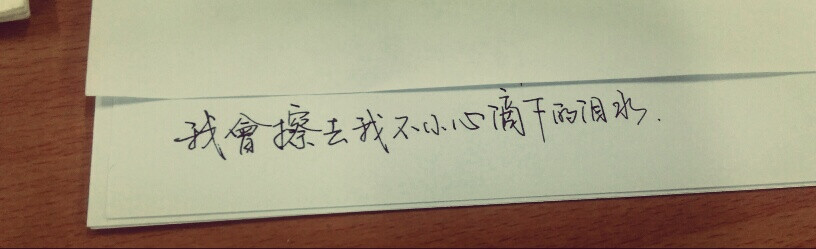 我會擦去我不小心滴下的泪水.